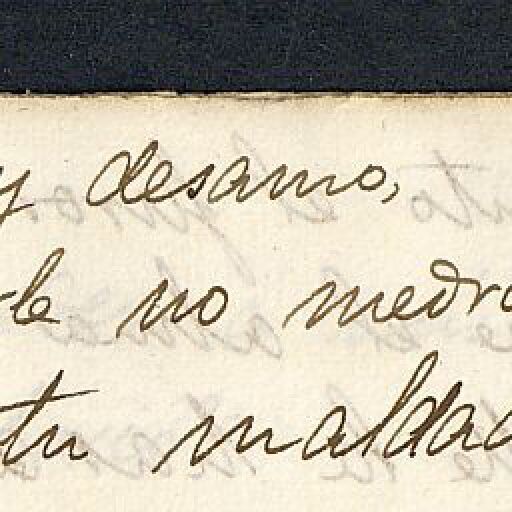 y desamo,
no medro
tu maldad